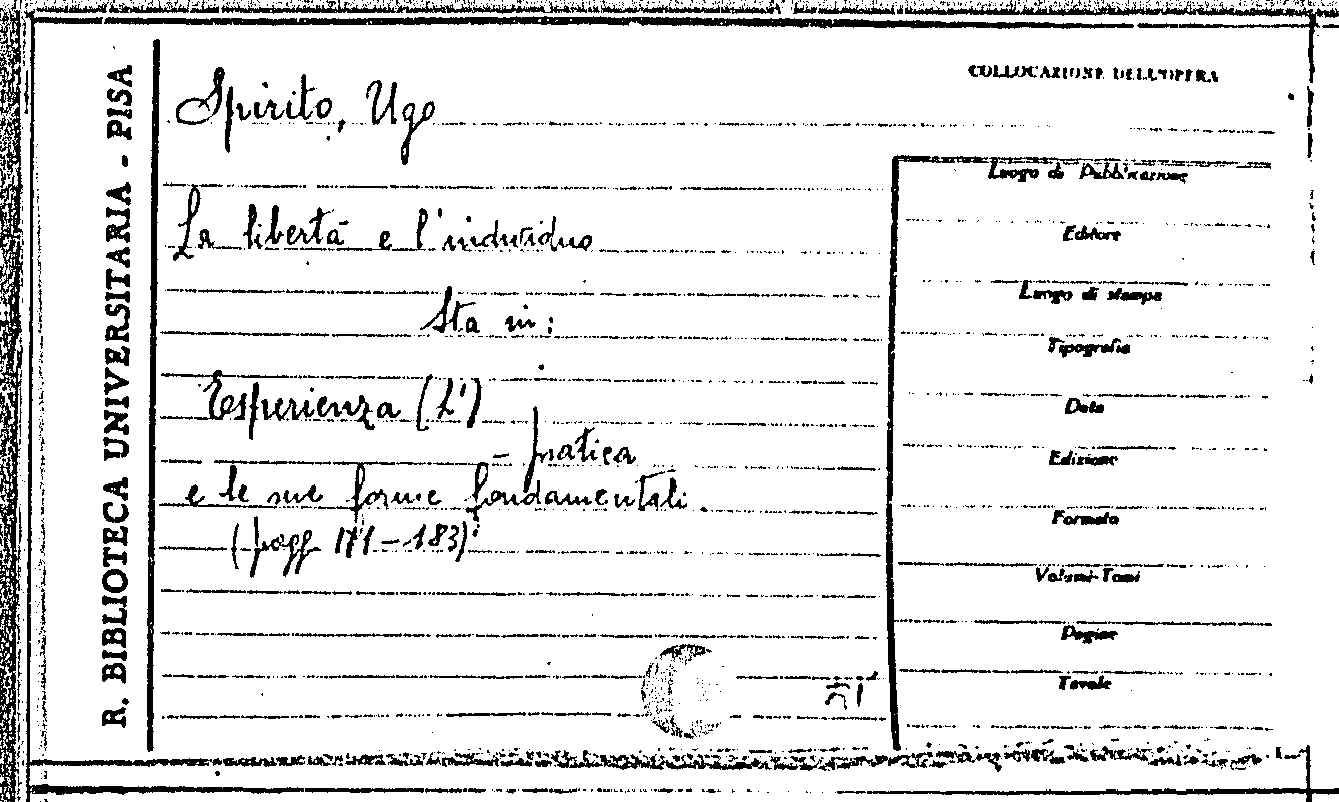 R. BIBLIOTECA UNIVERSITARIA - PISA
COLLOCAZIONE DELL'OPERA
Spirito, Ugo
La libertà e l'individuo
Sta in:
Esperienza (L')
- pratica
e le sue forme fondamentali.
(pagg. 171-183)
Luogo di Pubblicazione
Editore
Luogo di stampa
Tipografia
Data
Edizione
Formato
Volumi-Tomi
Pagine
Tavole